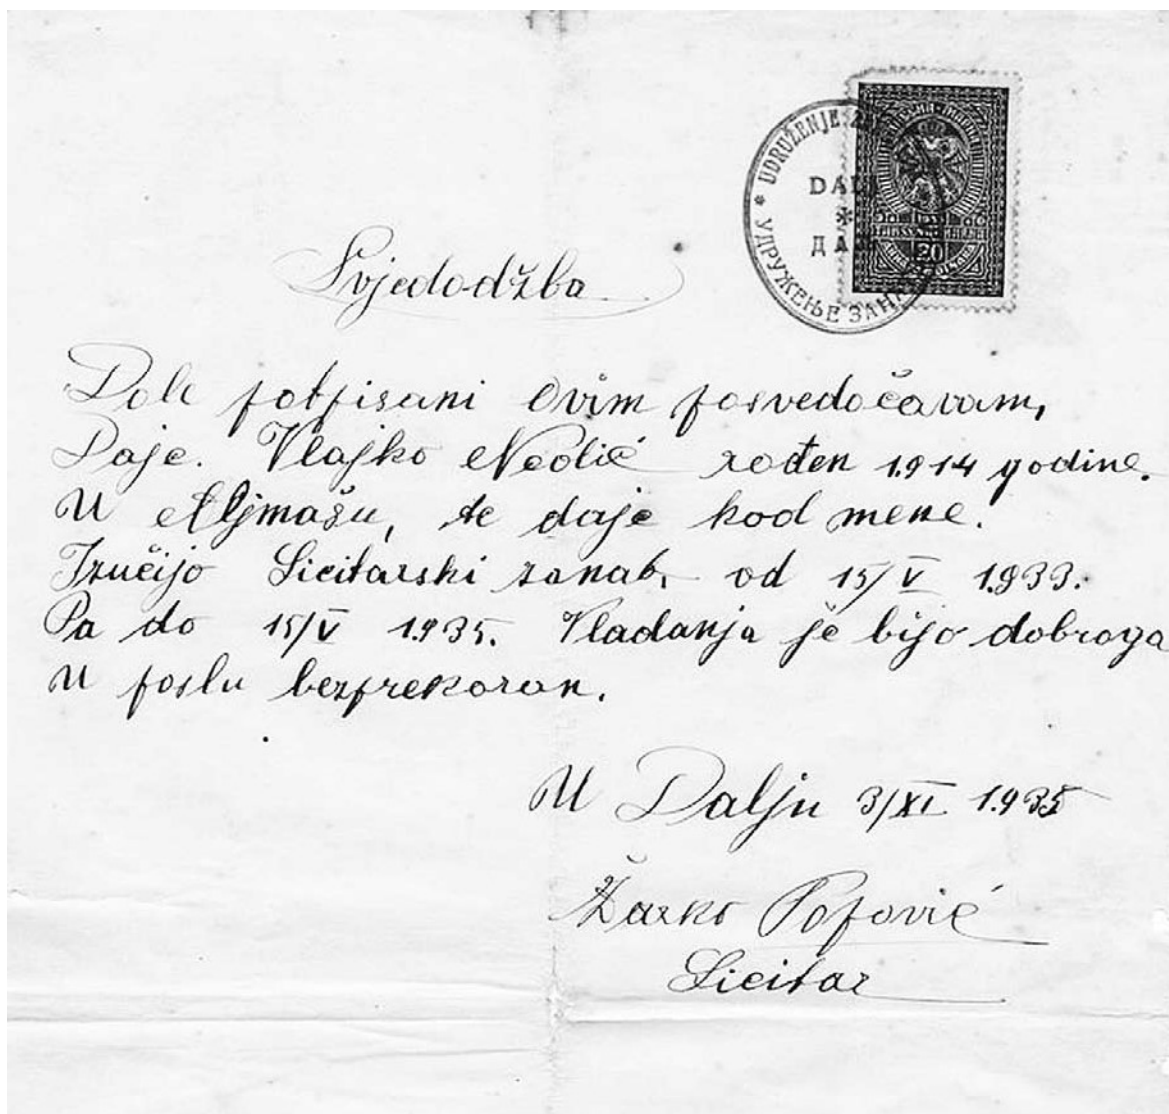 UDRUŽENJE
DALJ
*
ДАЉ
УДРУЖЕЊЕ ЗАНА
20
Svjedodžba
Dole potpisani Ovim posvedočavam,
Daje. Vlajko Nedić rođen 1.914 godine.
U Aljmašu, te daje kod mene.
Izučijo Licitarski zanat, od 15/V 1.933.
Pa do 15/V 1.935. Vladanja je bijo dobroga
U poslu bezprekoran.
U Dalju 3/XI 1.935
Žarko Popović
Licitar